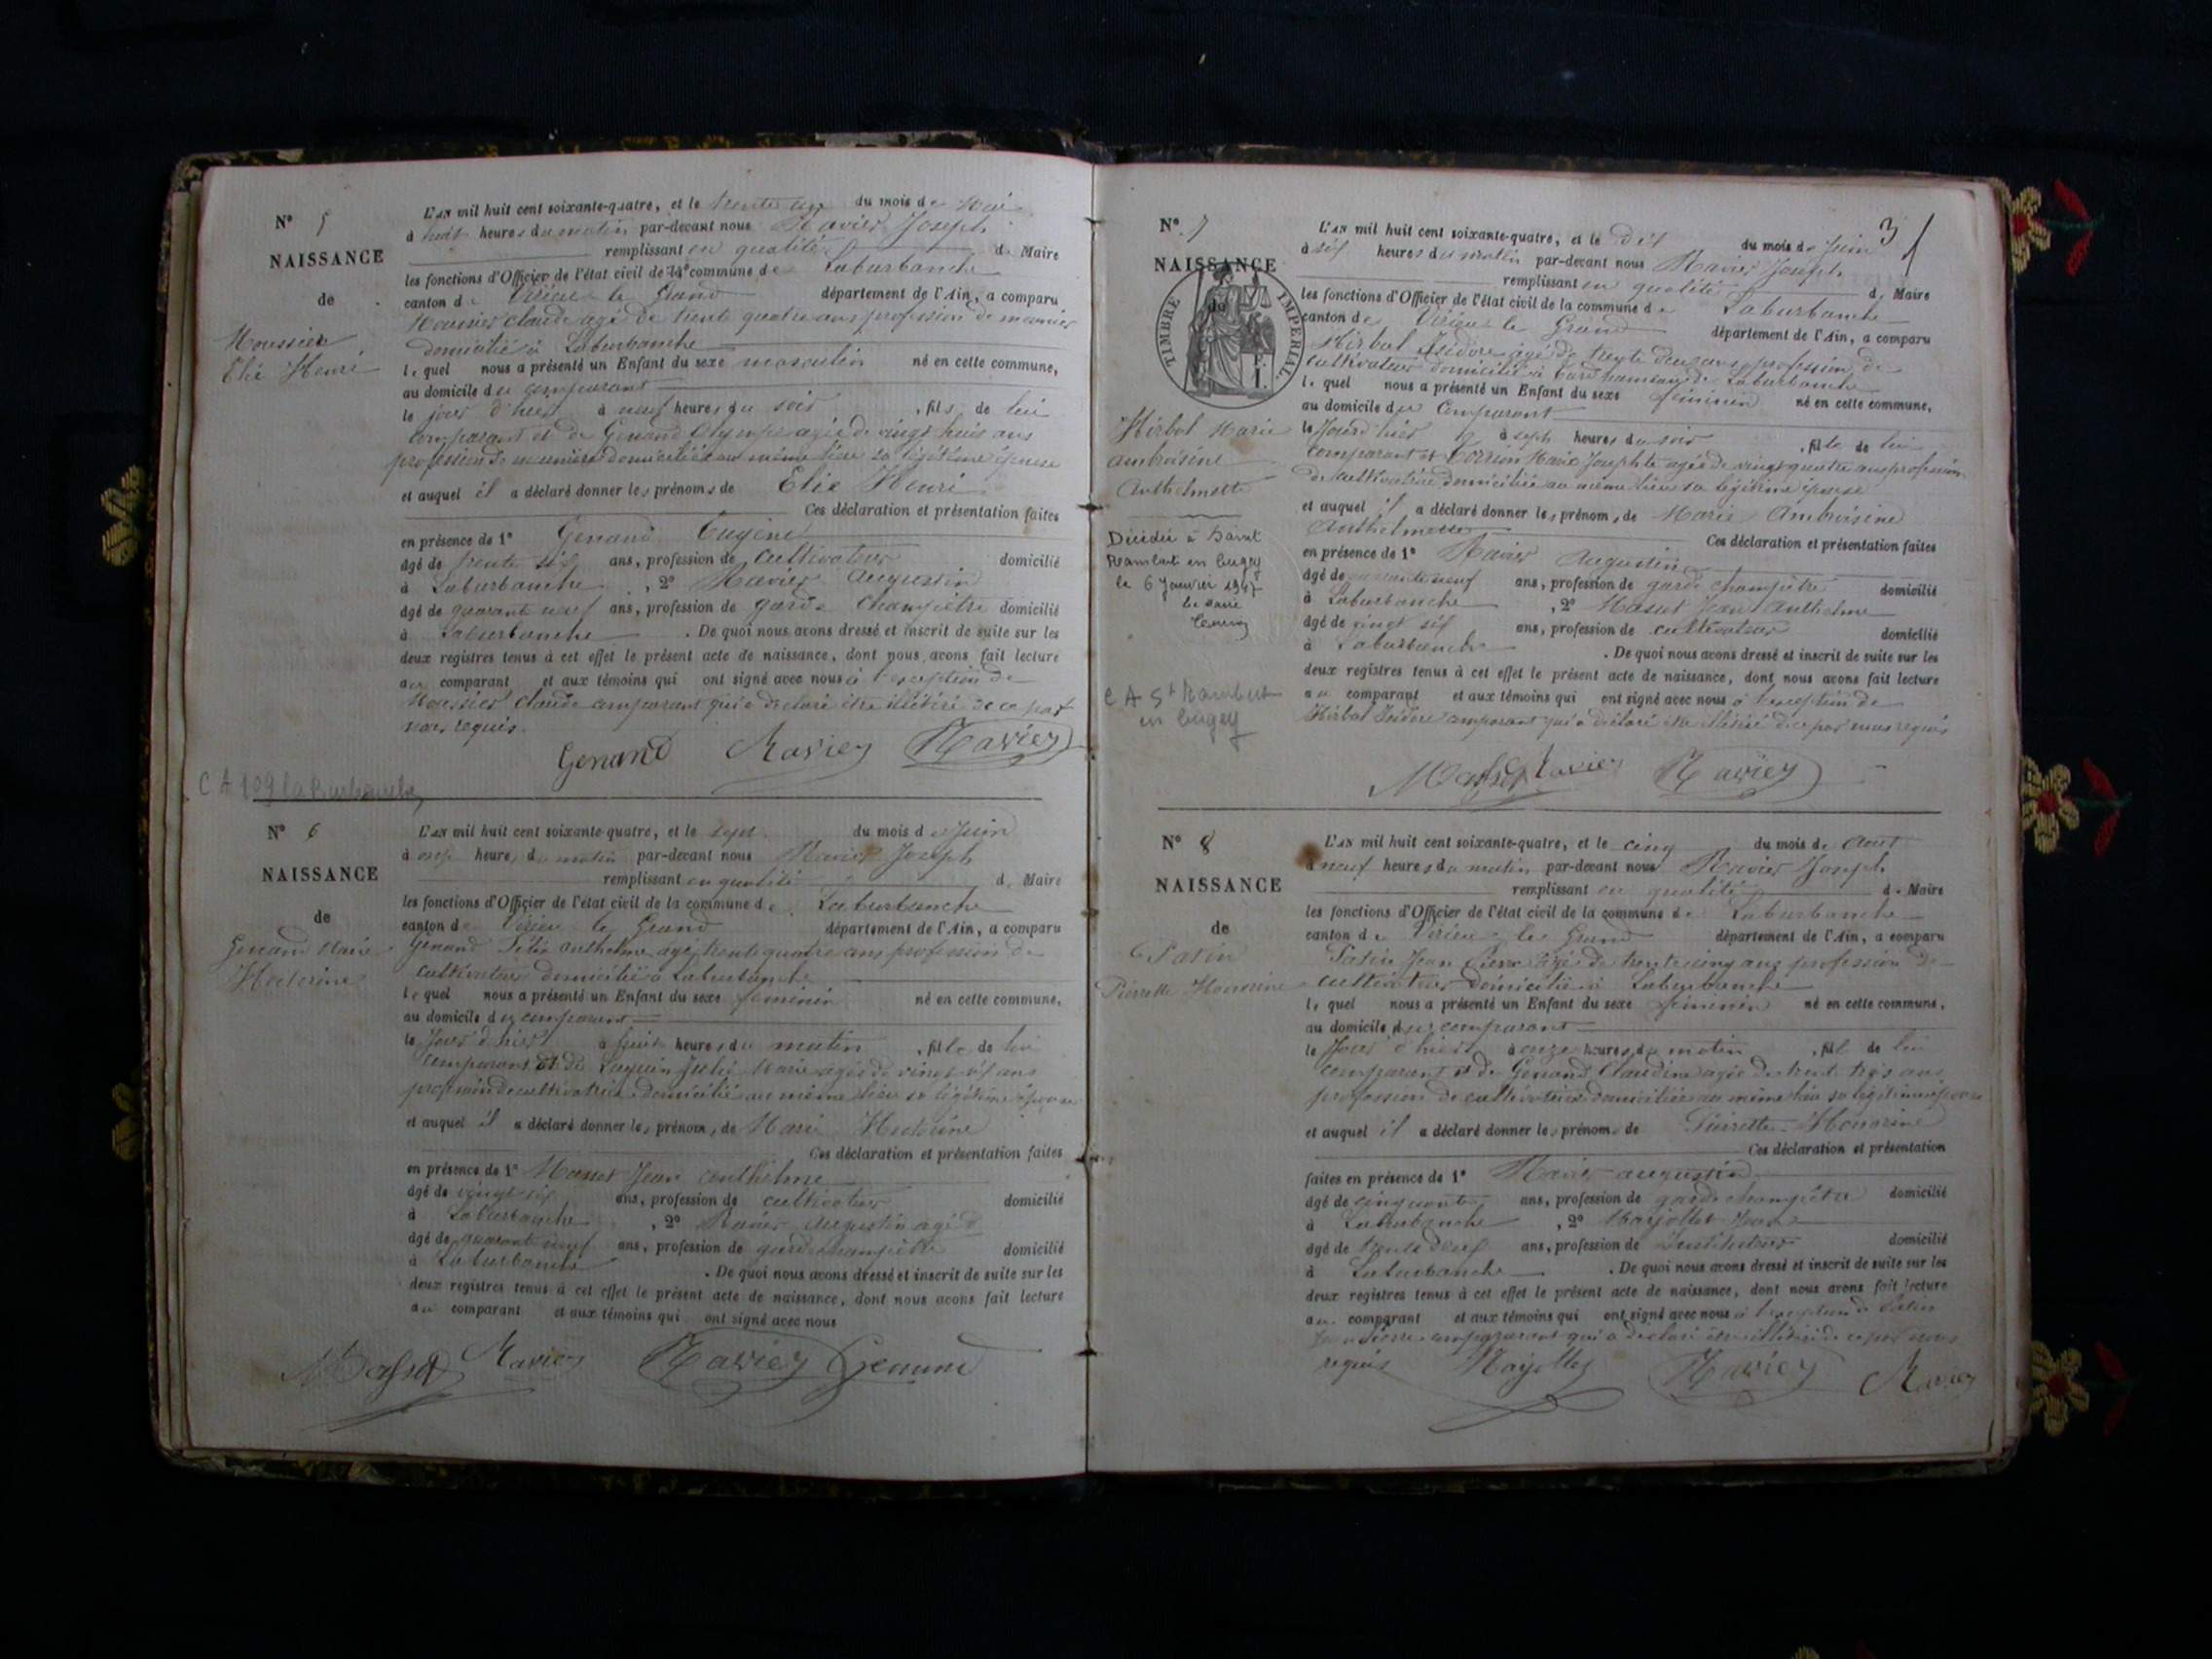 N° 5
NAISSANCE
de
Moussier
Elie Henri
L'AN mil huit cent soixante-quatre, et le trente un du mois de Mai
à huit heures du matin par-devant nous Ravier Joseph
remplissant en qualité de Maire
les fonctions d'Officier de l'état civil de la commune de Laburbanche
canton de Virieu le Grand département de l'Ain, a comparu
Claude agé de trente quatre ans profession de meunier
domicilié à Laburbanche
lequel nous a présenté un Enfant du sexe masculin né en cette commune,
au domicile du comparant
le jour d'hier à neuf heures du soir, fils de lui
comparant et de Genand Olympe agée de vingt huit ans
profession de meunière domiciliée au même lieu sa légitime épouse
et auquel il a déclaré donner les prénoms de Elie Henri
Ces déclaration et présentation faites
en présence de 1° Genand Eugène
âgé de trente six ans, profession de cultivateur domicilié
à Laburbanche, 2° Ravier Augustin
âgé de quarante neuf ans, profession de garde champêtre domicilié
à Laburbanche. De quoi nous avons dressé et inscrit de suite sur les
deux registres tenus à cet effet le présent acte de naissance, dont nous avons fait lecture
au comparant et aux témoins qui ont signé avec nous à l'exception de
Moussier Claude comparant qui a déclaré être illitéré de ce par
nous requis.
Genand Ravier Ravier
C A 109 la Burbanche
N° 6
NAISSANCE
de
Genand Marie
Hectorine
L'AN mil huit cent soixante-quatre, et le sept du mois de Juin
à onze heures du matin par-devant nous Ravier Joseph
remplissant en qualité de Maire
les fonctions d'Officier de l'état civil de la commune de Laburbanche
canton de Virieu le Grand département de l'Ain, a comparu
Genand Félix anthelme agé trente quatre ans profession de
cultivateur domicilié à Laburbanche
lequel nous a présenté un Enfant du sexe féminin né en cette commune,
au domicile du comparant
le Jour d'hier à huit heures du matin, fille de lui
comparant et de Julie Marie agée de vingt six ans
profession de cultivatrice domiciliée au même lieu sa légitime épouse
et auquel il a déclaré donner les prénoms de Marie Hectorine
Ces déclaration et présentation faites
en présence de 1° Masset Jean anthelme
âgé de vingt six ans, profession de cultivateur domicilié
à Laburbanche, 2° Ravier Augustin agé d
âgé de quarante neuf ans, profession de garde champêtre domicilié
à Laburbanche. De quoi nous avons dressé et inscrit de suite sur les
deux registres tenus à cet effet le présent acte de naissance, dont nous avons fait lecture
au comparant et aux témoins qui ont signé avec nous
Masset Ravier Ravier Genand
3
N° 7
NAISSANCE
de
TIMBRE IMPERIAL
Hirbal Marie
ambroisine
Anthelmette
Décédée à Saint
Rambert en bugey
le 6 Janvier 1947
le maire
C A St Rambert
en bugey
L'AN mil huit cent soixante-quatre, et le Dix du mois de Juin
à six heures du matin par-devant nous Ravier Joseph
remplissant en qualité de Maire
les fonctions d'Officier de l'état civil de la commune de Laburbanche
canton de Virieu le Grand département de l'Ain, a comparu
Hirbal Isidore agé de trente deux ans profession de
cultivateur domicilié à hameau de Laburbanche
lequel nous a présenté un Enfant du sexe féminin né en cette commune,
au domicile du Comparant
le Jour d'hier à sept heures du soir, fille de lui
comparant et Marie Josephte agée de vingt quatre ans profession
de cultivatrice domiciliée au même lieu sa légitime épouse
et auquel il a déclaré donner les prénoms de Marie Ambroisine
Anthelmette
Ces déclaration et présentation faites
en présence de 1° Ravier Augustin
âgé de quarante neuf ans, profession de garde champêtre domicilié
à Laburbanche, 2° Masset Jean Anthelme
âgé de vingt six ans, profession de cultivateur domicilié
à Laburbanche. De quoi nous avons dressé et inscrit de suite sur les
deux registres tenus à cet effet le présent acte de naissance, dont nous avons fait lecture
au comparant et aux témoins qui ont signé avec nous à l'exception de
Hirbal Isidore comparant qui a déclaré être illitéré de ce par nous requis
Masset Ravier Ravier
N° 8
NAISSANCE
de
Patin
Pierrette Honorine
L'AN mil huit cent soixante-quatre, et le cinq du mois de Aout
à neuf heures du matin, par-devant nous Ravier Joseph
remplissant en qualité de Maire
les fonctions d'Officier de l'état civil de la commune de Laburbanche
canton de Virieu le Grand département de l'Ain, a comparu
Patin Jean Pierre agé de trente cinq ans profession de
cultivateur domicilié à Laburbanche
lequel nous a présenté un Enfant du sexe féminin né en cette commune.
au domicile du comparant
le Jour d'hier à onze heures du matin, fille de lui
comparant et de Genand Claudine agée de trente trois ans
profession de cultivatrice domiciliée au même lieu sa légitime épouse
et auquel il a déclaré donner les prénoms de Pierrette Honorine
Ces déclaration et présentation
faites en présence de 1° Ravier augustin
âgé de cinquante ans, profession de garde champêtre domicilié
à Laburbanche, 2° Marjollet Jean
âgé de trente neuf ans, profession de Instituteur domicilié
à Laburbanche. De quoi nous avons dressé et inscrit de suite sur les
deux registres tenus à cet effet le présent acte de naissance, dont nous avons fait lecture
au comparant et aux témoins qui ont signé avec nous à l'exception de Patin
Jean Pierre comparant qui a déclaré être illitéré de ce par nous
requis Ravier Ravier